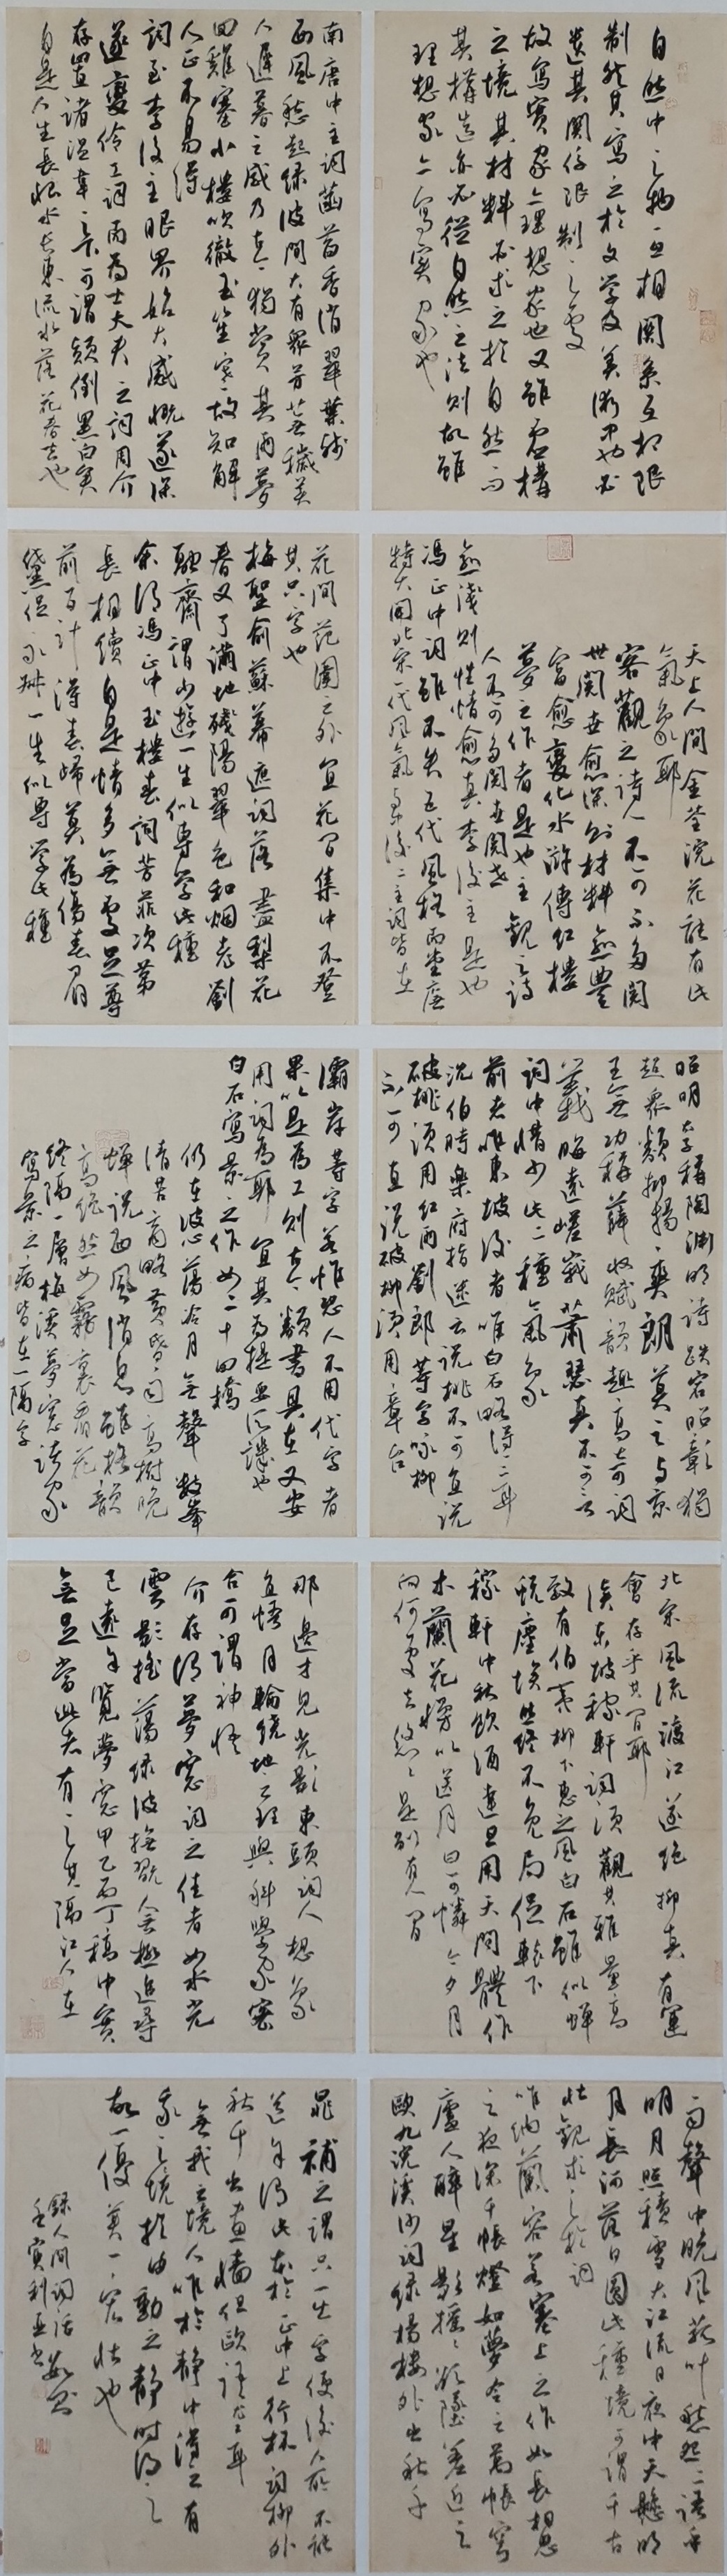 自然中之物互相関系互相限
制然其寫之於文学及美術中也必
遺其関係限制之處
故寫實家亦理想家也又雖虛構
之境其材料必求之於自然而
其構造亦必從自然之法則故雖
理想家亦寫實家也
南唐中主詞菡萏香消翠葉殘
西風愁起綠波間大有眾芳蕪穢美
人遲暮之感乃古今獨賞其雨夢
回雞塞小樓吹徹玉笙寒故知解
人正不易得
詞至李後主眼界始大感慨遂深
遂變伶工詞而為士大夫之詞周介
存置諸温韋之下可謂顛倒黑白矣
自是人生長恨水長東流水落花春去也
天上人間金荃浣花能有此
氣象耶
客觀之詩人不可不多閱
世閱世愈深則材料愈豐
富愈變化水滸傳紅樓
夢之作者是也主觀之詩
人不可多閱世閱世
愈淺則性情愈真李後主是也
馮正中詞雖不失五代風格而堂廡
特大開北宋一代風氣與後二主詞皆在
花間范圍之外宜花間集中不登
其只字也
梅聖俞蘇幕遮詞落盡梨花
春又了滿地殘陽翠色和烟老劉
融齋謂少游一生似專学此種
余謂馮正中玉樓春詞芳菲次第
長相續自是情多無處足尊
前百計得春歸莫為傷春眉
黛促永叔一生似專学此種
昭明太子稱陶淵明詩跌宕昭彰獨
超眾類抑揚爽朗莫之與京
王無功稱薛收賦韻趣高奇詞
義晦遠嵯峨蕭瑟真不可言
詞中惜少此二種氣象
前者唯東坡後者唯白石略得一二耳
沈伯時樂府指迷云說桃不可直說
破桃須用紅雨劉郎等字咏柳
不可直說破柳須用章台
灞岸等字若惟恐人不用代字者
果以是為工則古今類書具在又安
用詞為耶宜其為提要所譏也
白石寫景之作如二十四橋
仍在波心蕩冷月無聲數峰
清苦商略黃昏雨高樹晚
蟬說西風消息雖格韻
高絕然如霧裏看花
終隔一層梅溪夢窗諸家
寫景之病皆在一隔字
北宋風流渡江遂絕抑真有運
會存乎其間耶
讀東坡稼軒詞須觀其雅量高
致有伯夷柳下惠之風白石雖似蟬
蛻塵埃然終不免局促轅下
稼軒中秋飲酒達旦用天問體作
木蘭花慢以送月曰可憐今夕月
向何處去悠悠是別有人間
那邊才見光影東頭詞人想象
直悟月輪繞地之理與科學家密
合可謂神悟
介存謂夢窗詞之佳者如水光
雲影搖蕩綠波撫翫無極追尋
已遠余覽夢窗甲乙丙丁稿中實
無足當此者有之其隔江人在
雨聲中晚風菰葉愁怨二語乎
明月照積雪大江流日夜中天懸明
月長河落日圓此種境可謂千古
壯觀求之於詞
唯納蘭容若塞上之作如長相思
之夜深千帳燈如夢令之萬帳穹
廬人醉星影搖搖欲墜差近之
歐九浣溪沙詞綠楊樓外出秋千
晁補之謂只一出字便後人所不能
道余謂此本於正中上行杯詞柳外
秋千出畫牆但歐語尤工耳
無我之境人唯於靜中得之有
我之境於由動之靜時得之
故一優美一宏壯也
錄人間詞話數則
壬寅利亞書